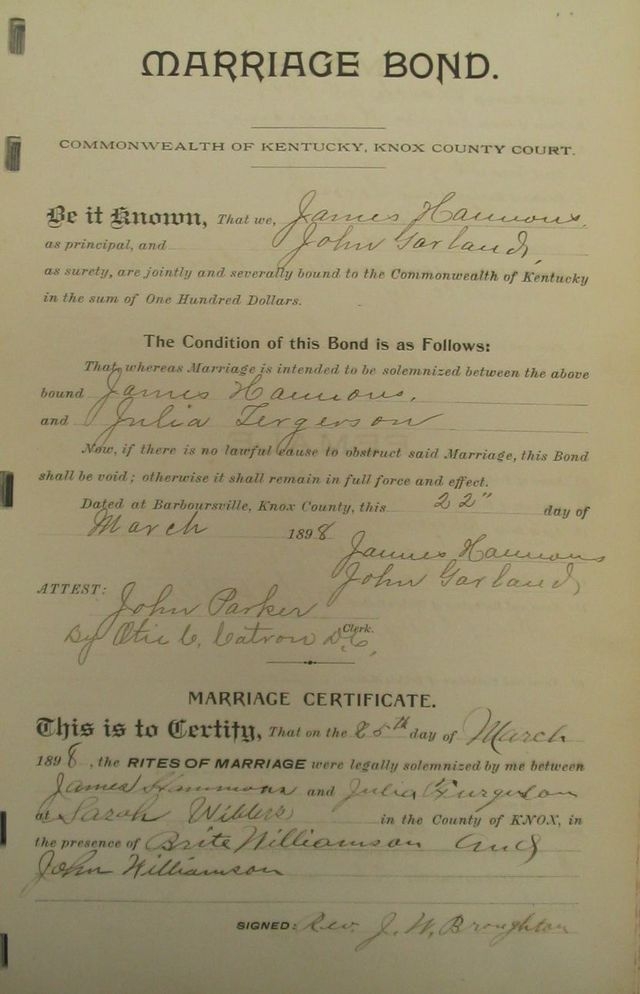 MARRIAGE BOND.
COMMONWEALTH OF KENTUCKY, KNOX COUNTY COURT.
Be it Known, That we, James Hammons,
as principal, and John Garland,
as surety, are jointly and severally bound to the Commonwealth of Kentucky
in the sum of One Hundred Dollars.
The Condition of this Bond is as Follows:
That whereas Marriage is intended to be solemnized between the above
bound James Hammons,
and Julia Fergerson
Now, if there is no lawful cause to obstruct said Marriage, this Bond
shall be void; otherwise it shall remain in full force and effect.
Dated at Barboursville, Knox County, this 22" day of
March 1898
James Hammons
John Garland
ATTEST:
John Parker
Clerk.
By Otis C. Catron D.C.
MARRIAGE CERTIFICATE.
This is to Certify, That on the 25th day of March
1898, the RITES OF MARRIAGE were legally solemnized by me between
James Hammons and Julia Furgerson
at Sarah in the County of KNOX, in
the presence of Brite Williamson and
John Williamson
SIGNED: Rev. J. W. Broughton